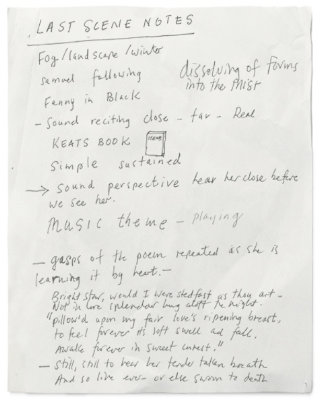 LAST SCENE NOTES
Fog/landscape/winter
dissolving of forms
into the mist
Samuel following
Fanny in Black
- Sound reciting close - far - Real
KEATS BOOK
Simple sustained
→ Sound perspective hear her close before
we see her.
MUSIC theme - playing
- gasps of the poem repeated as she is
learning it by heart. -
Bright star, would I were stedfast as thou art -
Not in lone splendour hung aloft the night.
"pillow'd upon my fair love's ripening breast,
to feel forever its soft swell and fall,
Awake forever in sweet unrest."
- Still, still to hear her tender taken breath
And so live ever - or else swoon to death